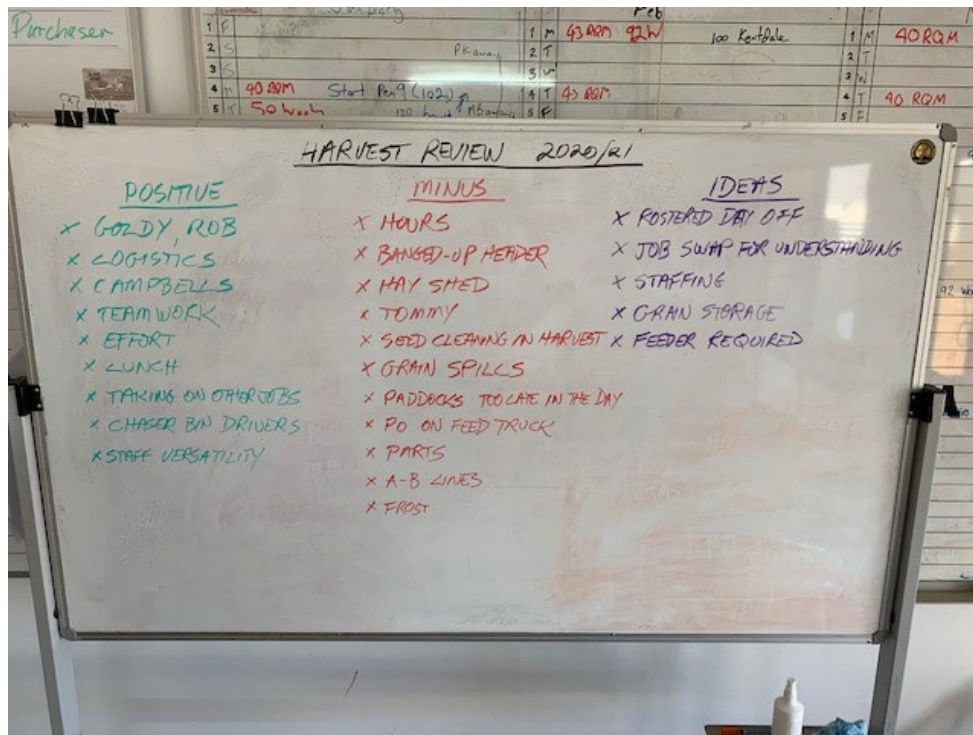 Purchaser
Feb
1 F
1 M 43 RQM 92W 100 Kentdale
1 M 40 RQM
2 S PK away
2 T
2 T
3 S
3 W
4 M 40 RQM Start Pen 9 (102)
4 T 43 RQM
4 T 40 RQM
5 T
5 F
5 F
HARVEST REVIEW 2020/21
POSITIVE
X GOLDY, ROB
X LOGISTICS
X CAMPBELLS
X TEAMWORK
X EFFORT
X LUNCH
X TAKING ON OTHER JOBS
X CHASER BIN DRIVERS
X STAFF VERSATILITY
MINUS
X HOURS
X BANGED-UP HEADER
X HAY SHED
X TOMMY
X SEED CLEANING IN HARVEST
X GRAIN SPILLS
X PADDOCKS TOO LATE IN THE DAY
X PO ON FEED TRUCK
X PARTS
X A-B LINES
X FROST
IDEAS
X ROSTERED DAY OFF
X JOB SWAP FOR UNDERSTANDING
X STAFFING
X GRAIN STORAGE
X FEEDER REQUIRED